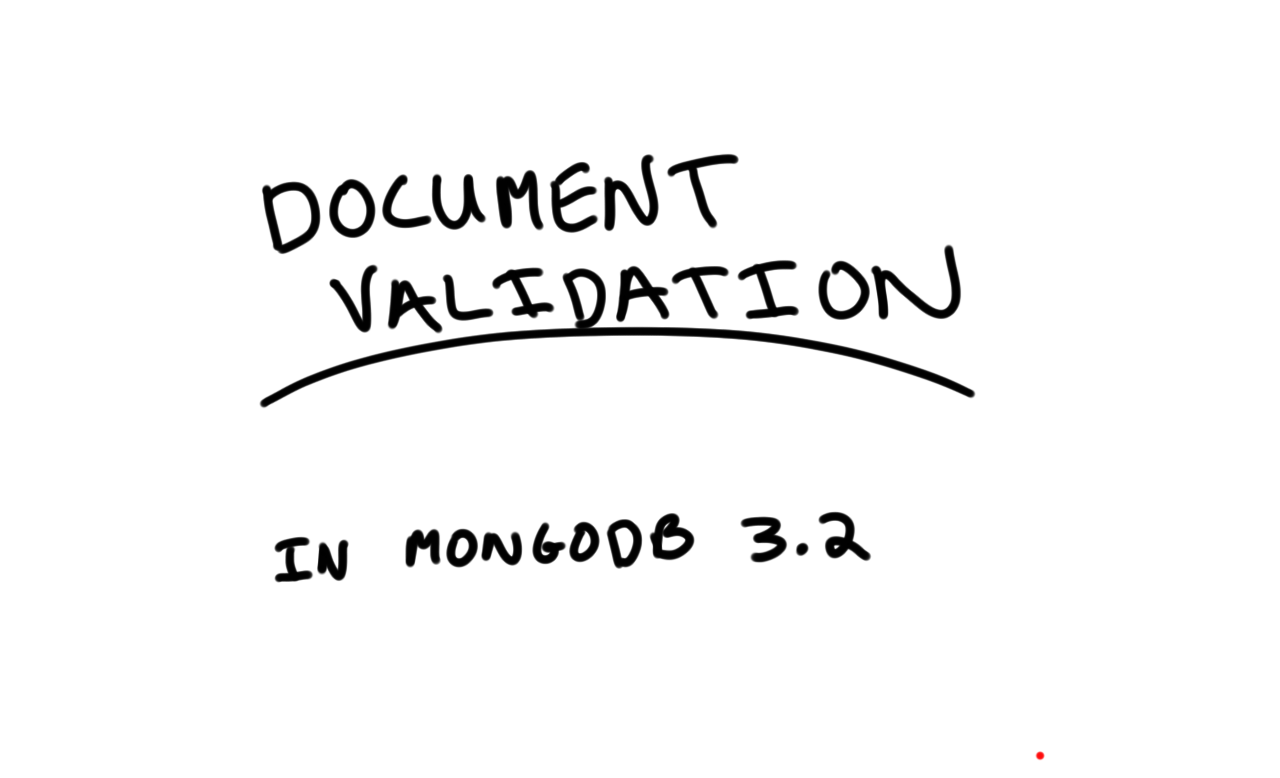 DOCUMENT
VALIDATION
IN MONGODB 3.2